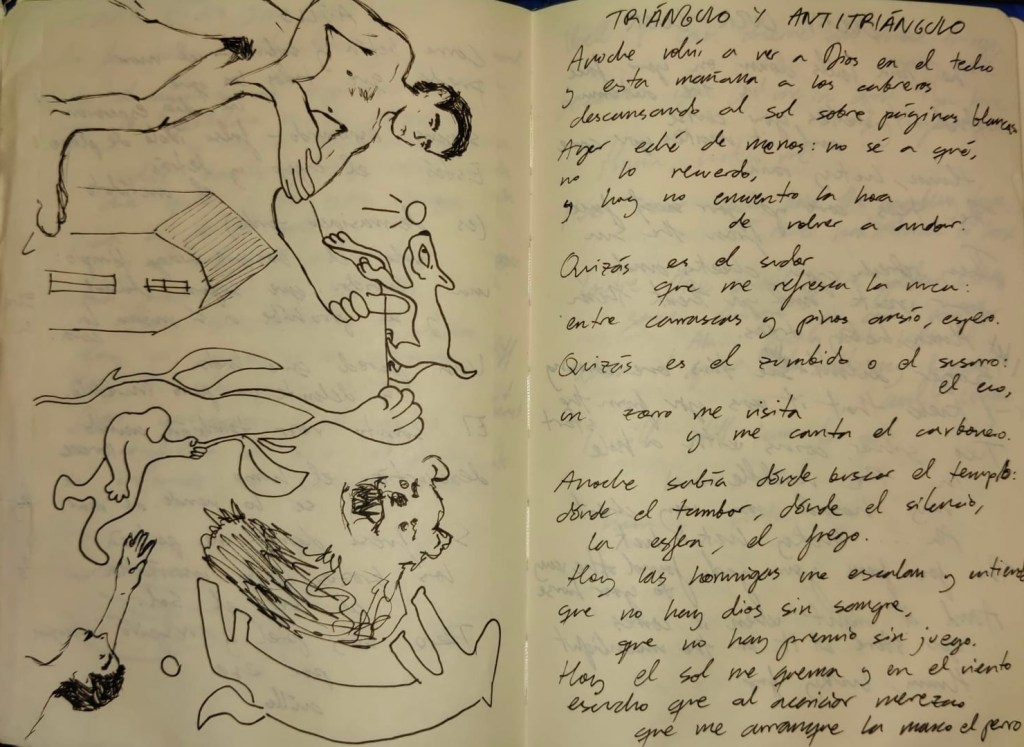 TRIÁNGULO Y ANTITRIÁNGULO
Anoche volví a ver a Dios en el techo
y esta mañana a los cabreros
descansando al sol sobre páginas blancas
Ayer eché de menos: no sé a qué,
no lo recuerdo,
y hoy no encuentro la hora
de volver a andar.
Quizás es el sudor
que me refresca la nuca:
entre carrascas y pinos ansío, espero.
Quizás es el zumbido o el susurro:
el eco,
un zorro me visita
y me canta el carbonero.
Anoche sabía dónde buscar el templo:
dónde el tambor, dónde el silencio,
la esfera, el fuego.
Hoy las hormigas me escalan y entiendo
que no hay dios sin sangre,
que no hay premio sin juego.
Hoy el sol me quema y en el viento
escucho que al acariciar merezco
que me arranque la mano el perro